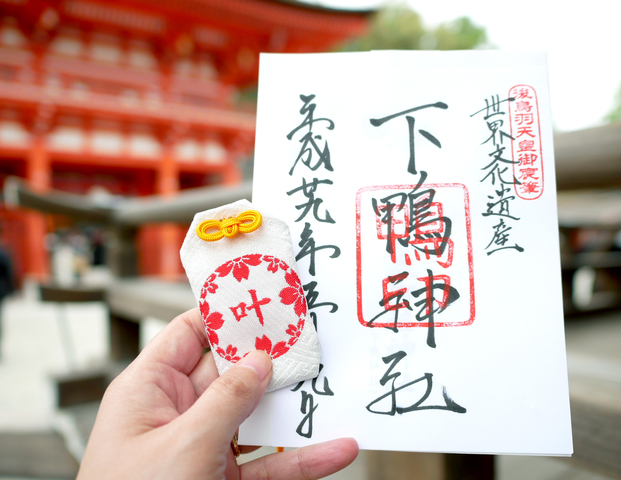 後鳥羽天皇御宸筆
世界文化遺産
下鴨神社
鴨
平成廿九年五 九日
叶